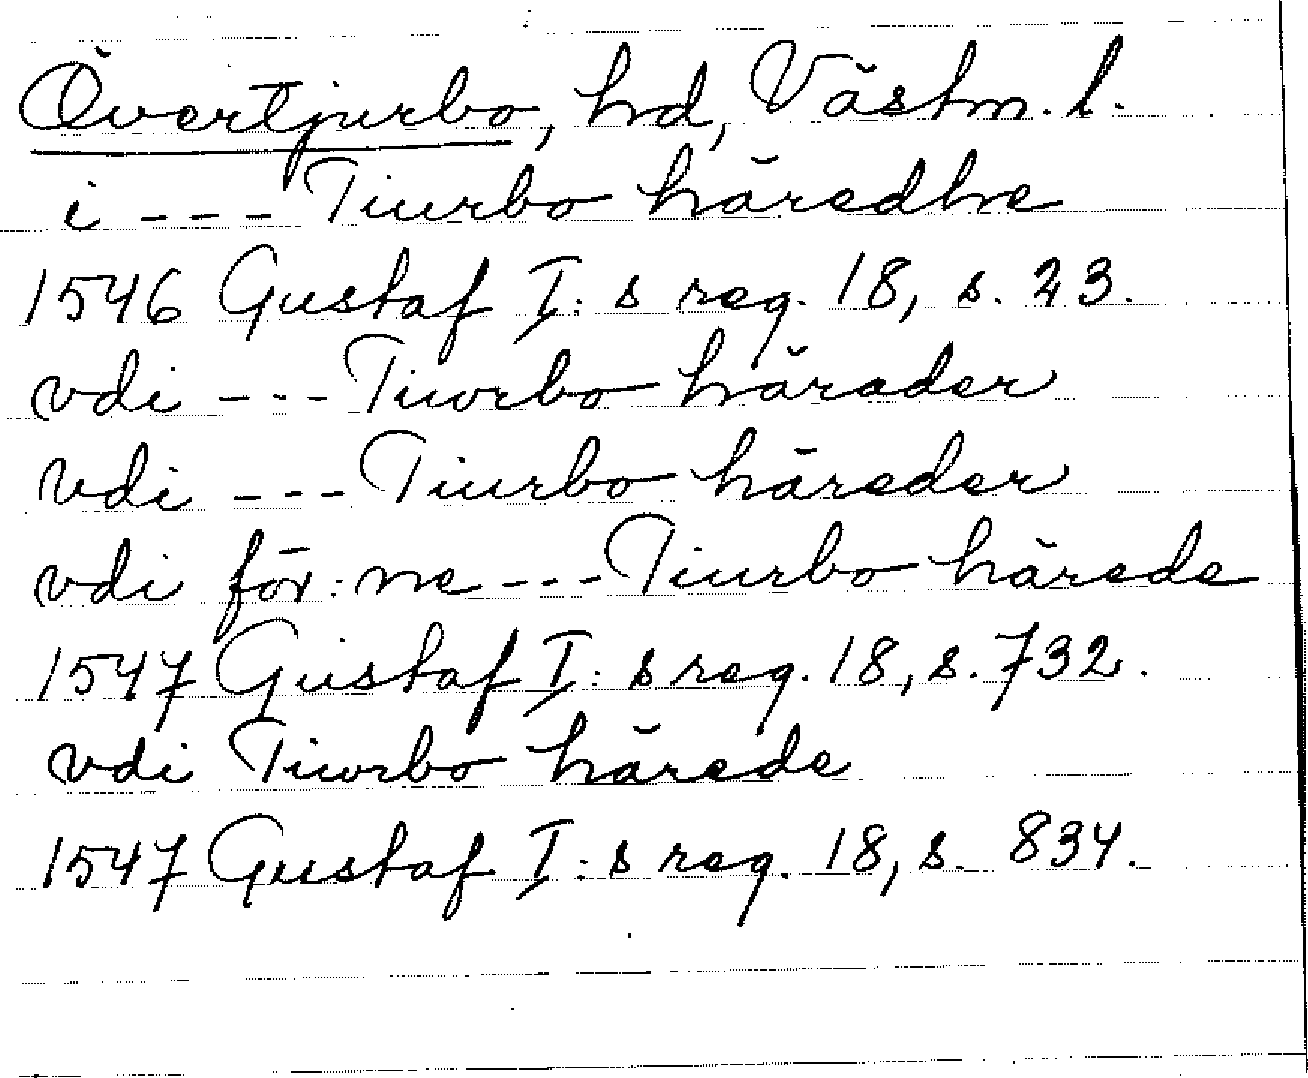 Övertjurbo, hd, Västm. l.
i --- Tiurbo häredhe
1546 Gustaf I: s reg. 18, s. 23.
vdi --- Tiwrbo härader
vdi --- Tiurbo häreder
vdi för: ne --- Tiurbo härede
1547 Gustaf I: s reg. 18, s. 732.
vdi Tiwrbo härede
1547 Gustaf I: s reg. 18, s. 834.